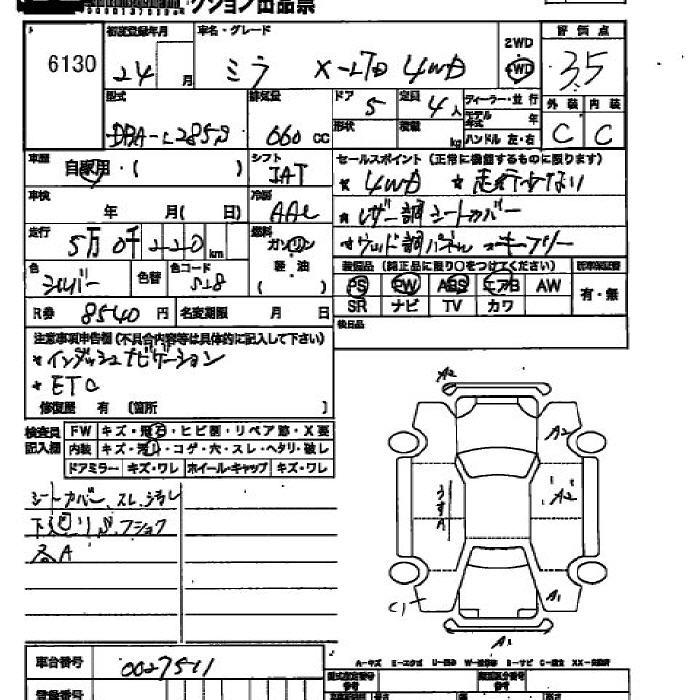 クション出品票
6130
初度登録年月
24 月
車名・グレード
ミラ X-LTD 4WD
2WD
4WD
評価点
3.5
外装 内装
C C
型式
DBA-L285S
排気量
660 CC
ドア 5
定員 4人
形状
積載 kg
ディーラー・並行
モデル年式 年
ハンドル 左・右
車歴
自家用・( )
シフト
IAT
車検
年 月( 日)
冷房
AAC
走行
5万0千220km
燃料
ガソリン
軽・油
( )
セールスポイント(正常に機能するものに限ります)
4WD
レザー調シートカバー
ウッド調パネル キーフリー
色
シルバー
色替
色コード
S28
装備品(純正品に限り○をつけてください)
PS PW ABS エアB AW
SR ナビ TV カワ
有・無
後日品
R券 8540円
名変期限 月 日
注意事項申告欄(不具合内容等は具体的に記入して下さい)
インダッシュナビゲーション
ETC
修復歴 有 〔箇所 〕
検査員
記入欄
FW キズ・飛石・ヒビ割・リペア跡・X要
内装 キズ・汚れ・コゲ・穴・スレ・ヘタリ・破レ
ドアミラー キズ・ワレ ホイール・キャップ キズ・ワレ
シートカバー、スレ、汚レ
A2
A2
A2
うすA
A1
C1
A1
車台番号 0027511
登録番号